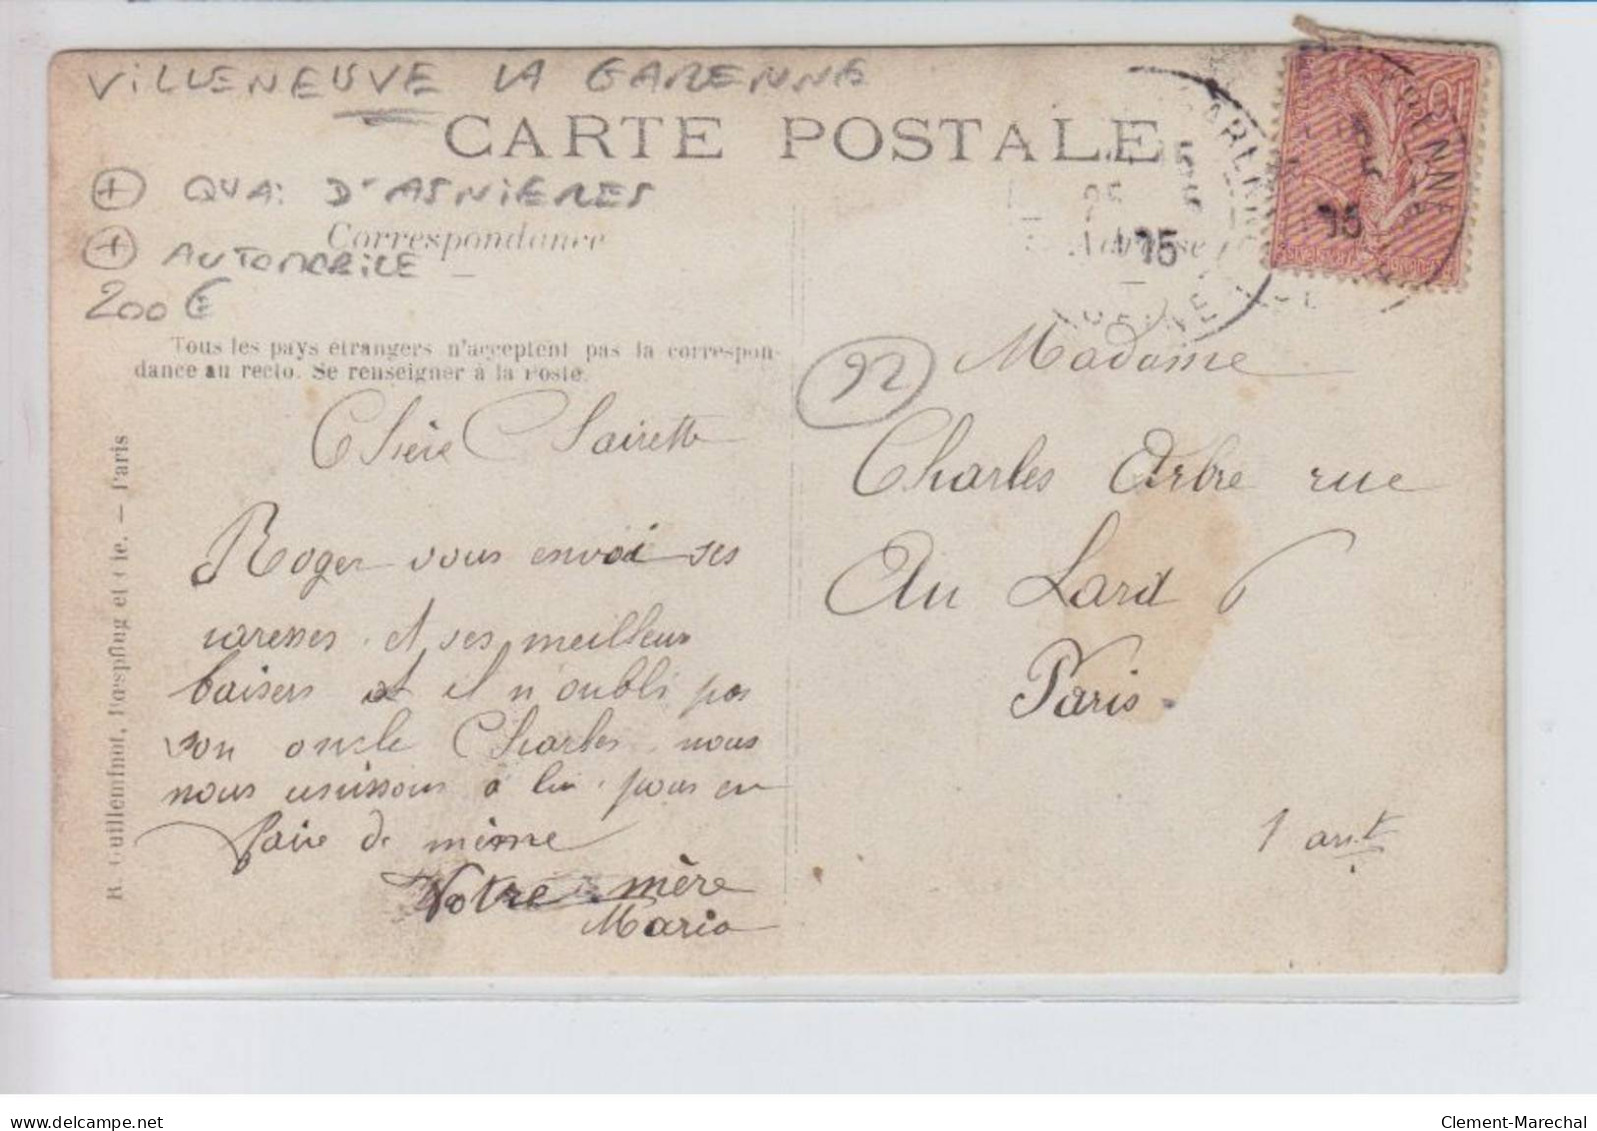 VILLENEUVE LA GARENNE
CARTE POSTALE
+ QUAI D'ASNIERES
Correspondance
+ AUTOMOBILE
200 €
Tous les pays étrangers n'acceptent pas la correspon-
dance au recto. Se renseigner à la Poste.
Chère Clairette
Roger vous envoi ses
caresses et ses meilleur
baisers et il n'oubli pas
son oncle Charles nous
nous unissons à lui pour en
faire de même
Votre mère
Maria
R. Guilleminot, Bœspflug et Cie. — Paris
Adresse
10
15
15
92
Madame
Charles Arbre rue
Au Lard 6
Paris
1 ant
delcampe.net
Clement-Marechal